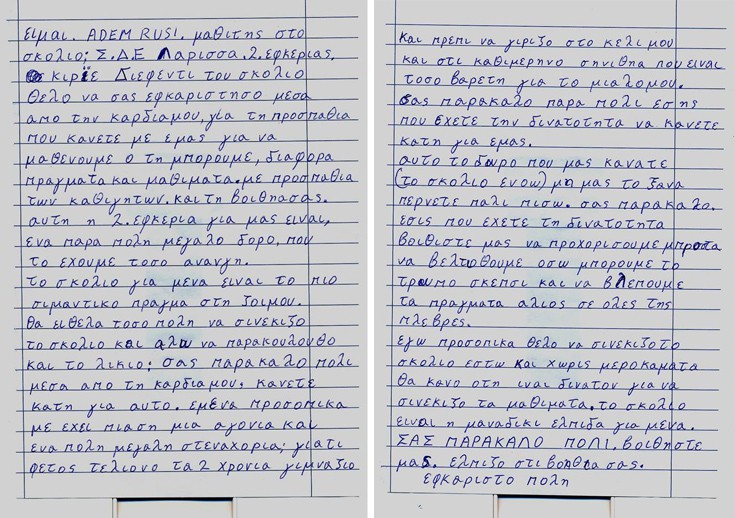 ειμαι. ADEM RUSI. μαθιτης στο
σκολιο; Σ.ΔΕ Λαρισσα.2.εφκεριας.
κιρϊε Διεφεντι του σκολιο
θελο να σας εφκαριστησο μεσα
απο την καρδιαμου, για τη προσπαθια
που κανετε με εμας για να
μαθενουμε ο τη μπορουμε, διαφορα
πραγματα και μαθιματα.με προσπαθια
των καθιγητων. και τη βοιθησας.
αυτη η 2.εφκερια για μας ειναι,
ενα παρα πολη μεγαλο δορο, που
το εχουμε τοσο αναγη.
το σκολιο για μενα ειναι το πιο
σιμαντικο πραγμα στη ζοιμου.
θα ειθελα τοσο πολη να σινεκιζο
το σκολιο και αλω να παρακουλουθο
και το λικιο; σας παρακαλο πολι
μεσα απο τη καρδιαμου. κανετε
κατη για αυτο. εμενα προσοπικα
με εχει πιαση μια αγονια και
ενα πολη μεγαλη στεναχορια; γιατι
φετος τελιονο τα 2 χρονια γιμναζιο
και πρεπι να γιριζο στο κελι μου
και στι καθιμερηνο σηνιθηα που ειναι
τοσο βαρετη για το μιαλομου.
σας παρακαλο παρα πολι εσης
που εχετε την δινατοτητα να κανετε
κατη για εμας.
αυτο το δωρο που μας κανατε
(το σκολιο ενοω) μη μας το ξανα
περνετε παλι πισω. σας παρακαλο.
εσις που εχετε τη δινατοτητα
βοιθιστε μας να προχορισουμε μπροστα
να βελτιοθουμε οσω μπορουμε το
τροπο σκεπσι και να βλεπουμε
τα πραγματα αλιος σε ολες της
πλεβρες.
εγω προσοπικα θελο να σινεκιζοτο
σκολιο εστω και χωρις μεροκαματα
θα κανο οτη ιναι δινατον για να
σινεκιζο τα μαθιματα. το σκολιο
ειναι η μαναδικι ελπιδα για μενα.
ΣΑΣ ΠΑΡΑΚΑΛΟ ΠΟΛΙ. βοιθηστε
μας. ελπιζο στι βοηθια σας.
εφκαριστο πολη